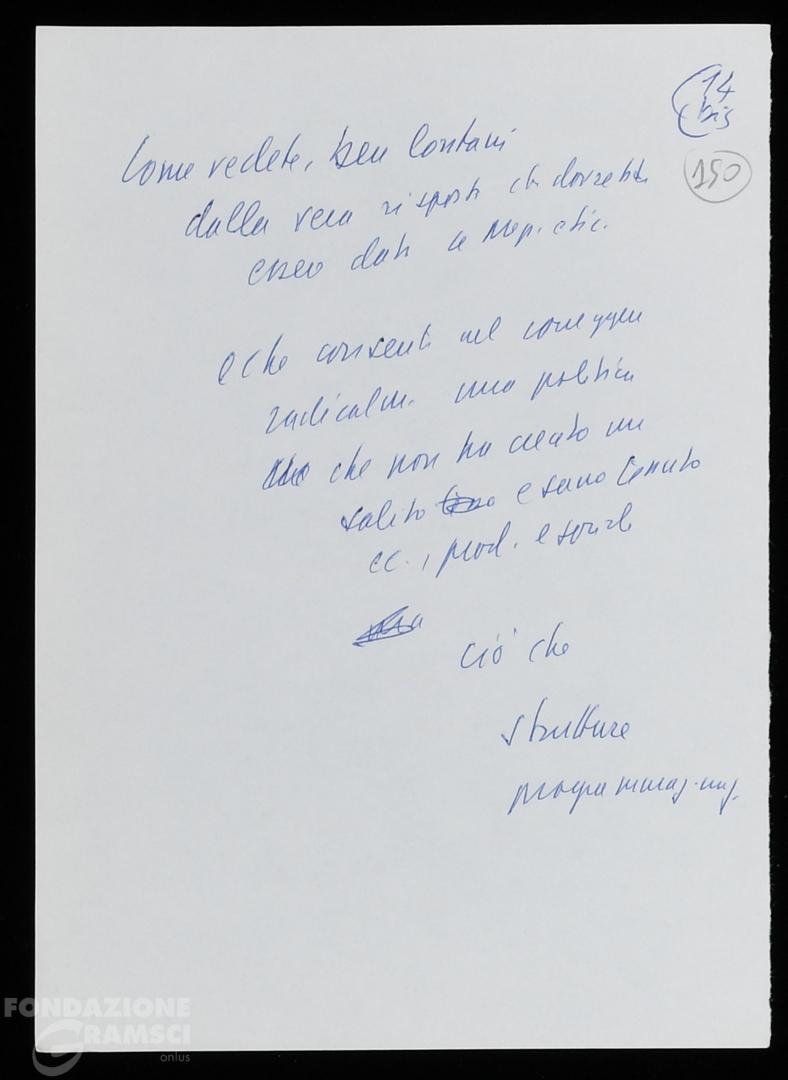 14
bis
150
Come vedete, ben lontani
dalla vera risposta ch dovrebbe
esser data a
e che consenta nel correggere
radicalm. una politica
che non ha creato un
solito e sano tessuto
ec., prod. e sociale
ciò che
strutture
programmaz.
FONDAZIONE
GRAMSCI
onlus